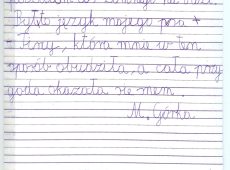 Był to język mojego psa +
- Piny, która mnie w ten
sposób obudziła, a cała przy
goda okazała się snem.
M. Górka